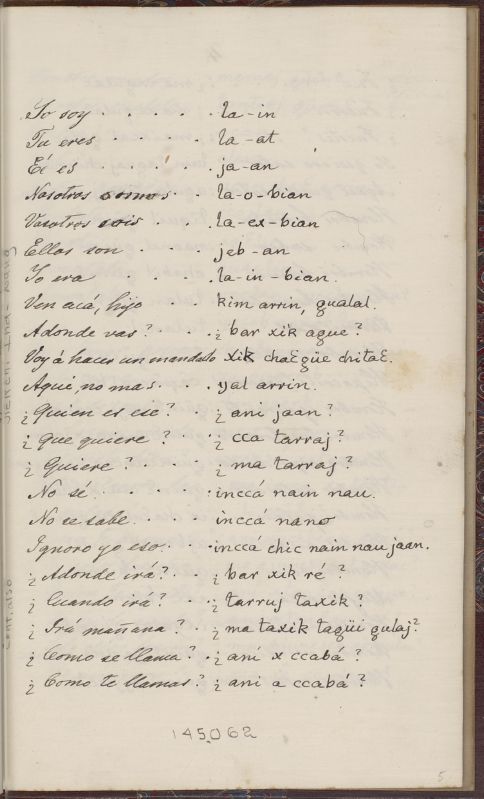 Yo soy . . . . . . la-in
Tu eres . . . . la-at
Él es . . . . . ja-an
Nosotros somos . . la-o-bian
Vosotros sois . . . la-ex-bian
Ellos son . . . . jeb-an
Yo era . . . . la-in-bian.
Ven acá, hijo . . . kim arrin, gualal.
Adonde vas? . . . ¿ bar xik ague?
Voy á hacer un mandado xik chaƐgüe chitaƐ.
Aqui, no mas . . . yal arrin.
¿ Quien es ese? . . ¿ ani jaan?
¿ Que quiere? . . ¿ cca tarraj?
¿ Quiere? . . . ¿ ma tarraj?
No sé . . . . . inccá nain nau.
No se sabe . . . . inccá nano
Ignoro yo eso . . . inccá chic nain nau jaan.
¿ Adonde irá? . . ¿ bar xik ré?
¿ Cuando irá? . . ¿ tarruj taxik?
¿ Irá mañana? . ¿ ma taxik tagüi gulaj?
¿ Como se llama? . ¿ ani x ccabá?
¿ Como te llamas? ¿ ani a ccabá?
145062
5